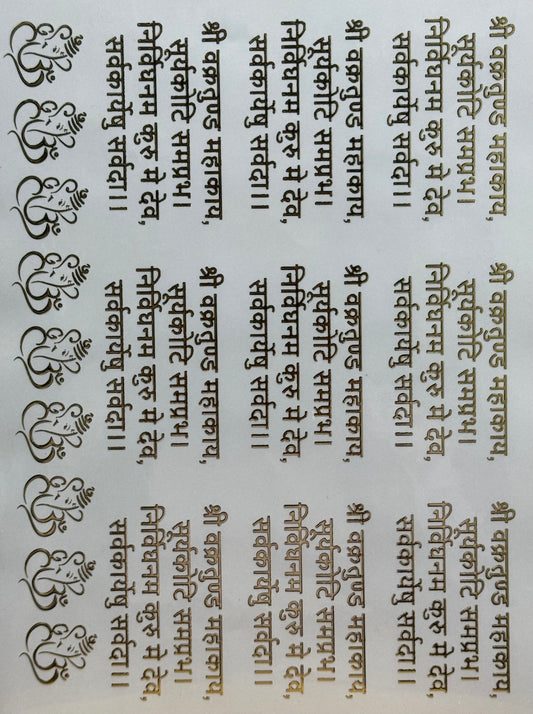 श्री वक्रतुण्ड महाकाय,
सूर्यकोटि समप्रभ।
निर्विघनम कुरु मे देव,
सर्वकार्येषु सर्वदा।।
श्री वक्रतुण्ड महाकाय,
सूर्यकोटि समप्रभ।
निर्विघनम कुरु मे देव,
सर्वकार्येषु सर्वदा।।
श्री वक्रतुण्ड महाकाय,
सूर्यकोटि समप्रभ।
निर्विघनम कुरु मे देव,
सर्वकार्येषु सर्वदा।।
श्री वक्रतुण्ड महाकाय,
सूर्यकोटि समप्रभ।
निर्विघनम कुरु मे देव,
सर्वकार्येषु सर्वदा।।
श्री वक्रतुण्ड महाकाय,
सूर्यकोटि समप्रभ।
निर्विघनम कुरु मे देव,
सर्वकार्येषु सर्वदा।।
श्री वक्रतुण्ड महाकाय,
सूर्यकोटि समप्रभ।
निर्विघनम कुरु मे देव,
सर्वकार्येषु सर्वदा।।
श्री वक्रतुण्ड महाकाय,
सूर्यकोटि समप्रभ।
निर्विघनम कुरु मे देव,
सर्वकार्येषु सर्वदा।।
श्री वक्रतुण्ड महाकाय,
सूर्यकोटि समप्रभ।
निर्विघनम कुरु मे देव,
सर्वकार्येषु सर्वदा।।
श्री वक्रतुण्ड महाकाय,
सूर्यकोटि समप्रभ।
निर्विघनम कुरु मे देव,
सर्वकार्येषु सर्वदा।।